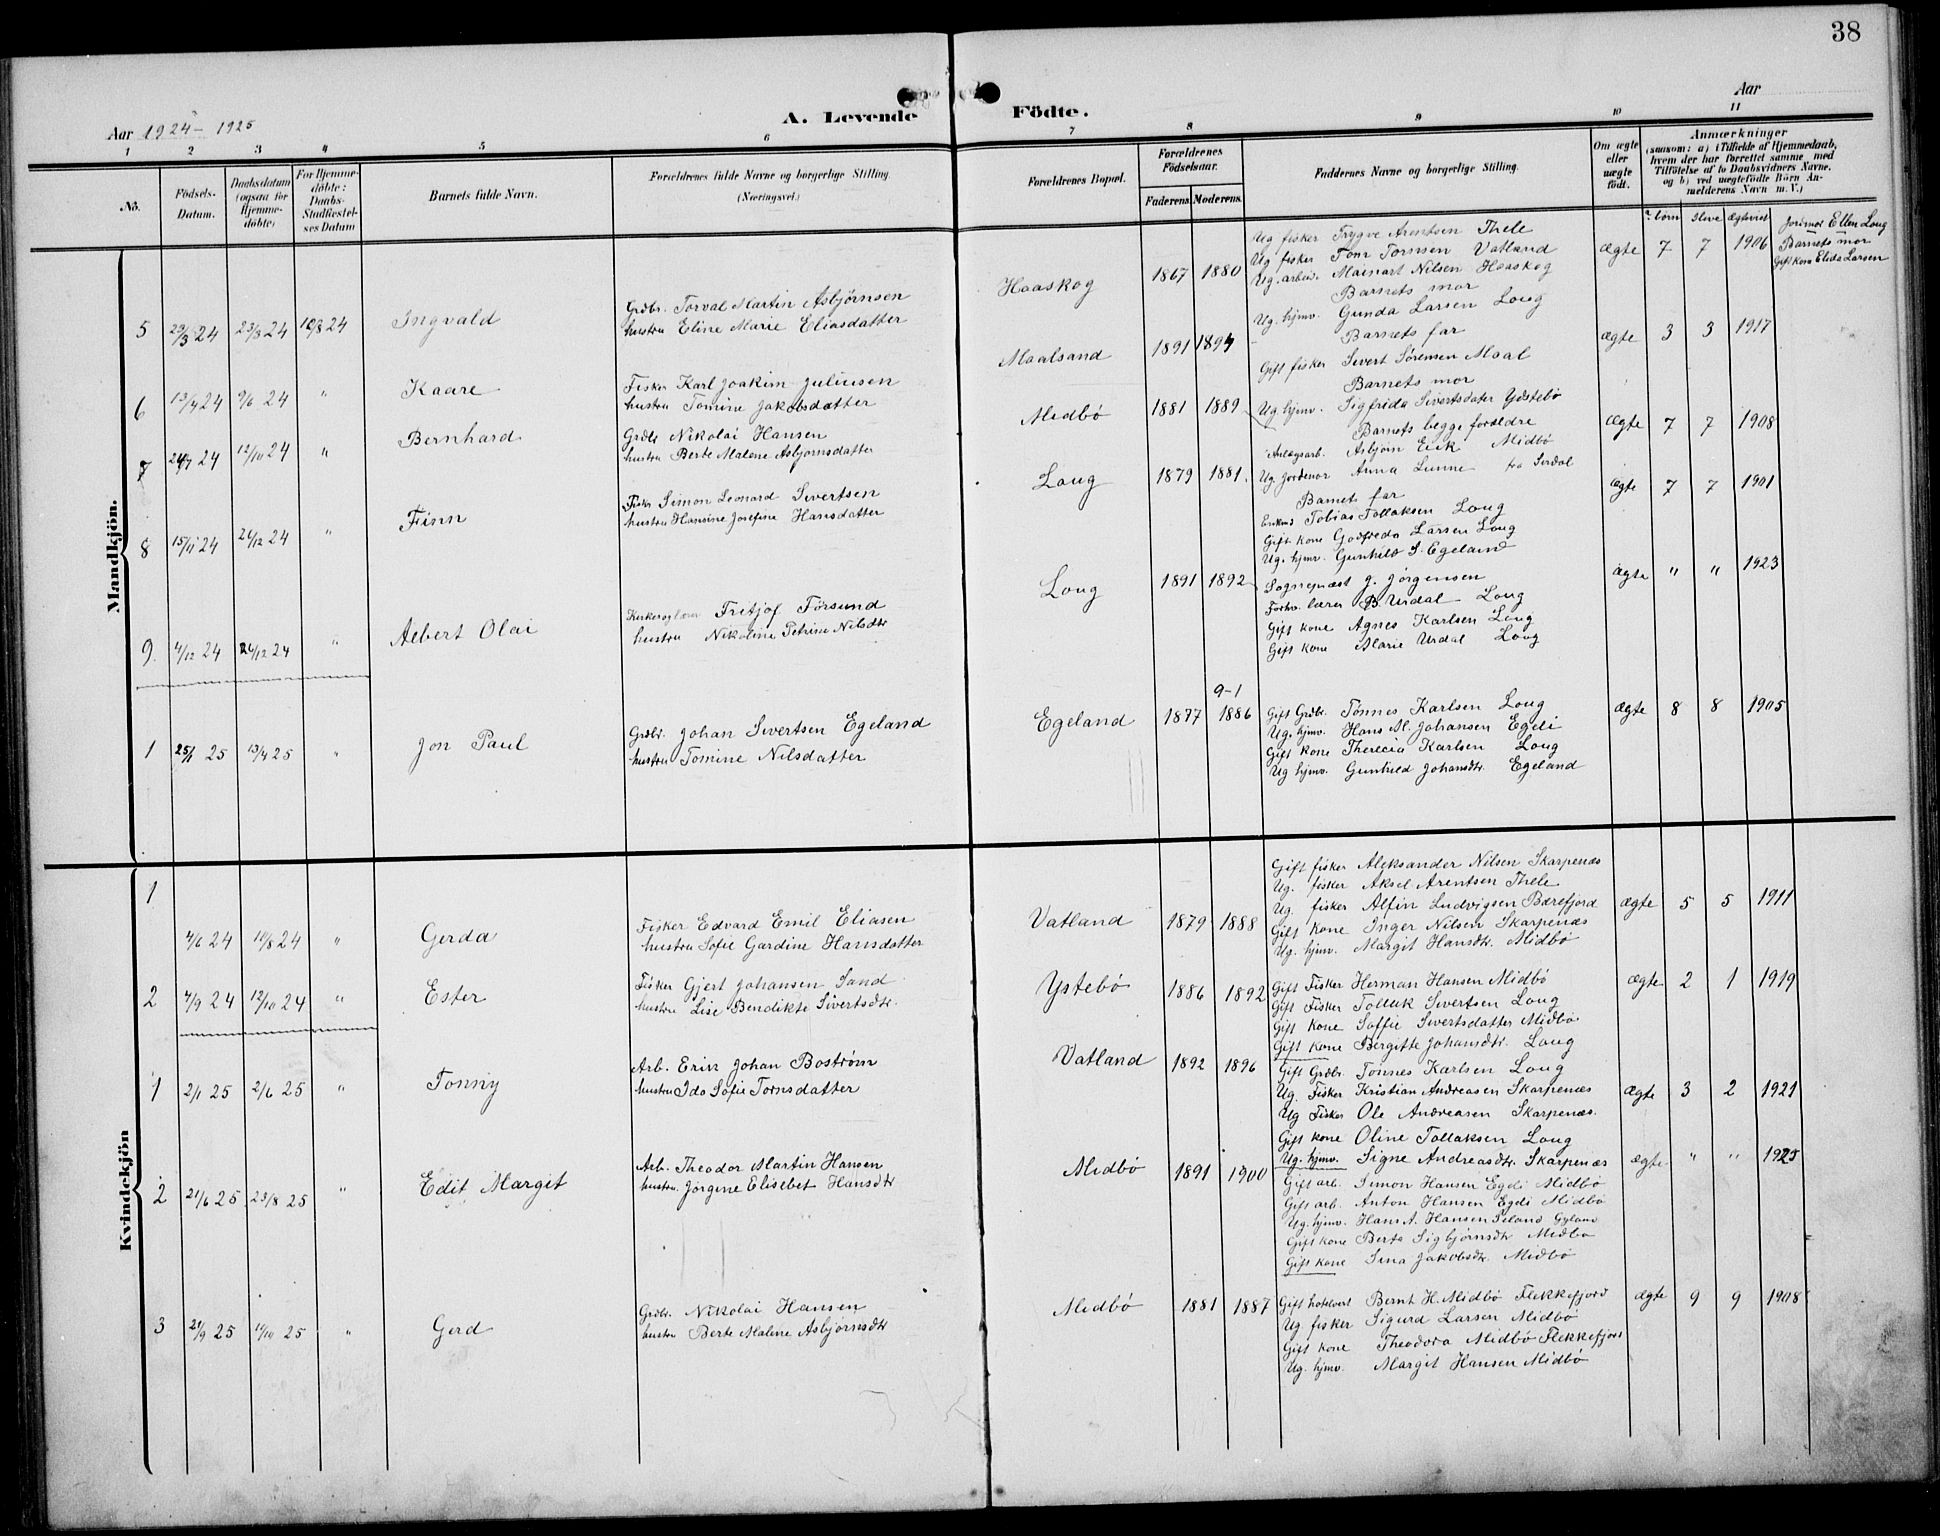 38
Aar 1924-1925
A. Levende Födte.
Aar
1 2 3 4 5 6 7 8 9 10 11
No.
Födsels-Datum.
Daabsdatum (ogsaa for Hjemmedöbte)
For Hjemmedöbte: Daabs-Stadfæstelses Datum
Barnets fulde Navn.
Forældrenes fulde Navne og borgerlige Stilling. (Næringsvei.)
Forældrenes Bopæl.
Forældrenes Födselsaar.
Faderens Moderens.
Faddernes Navne og borgerlige Stilling.
Om ægte eller uægte født.
Anmærkninger
(saasom: a) i Tilfælde af Hjemmedaab, hvem der har forrettet samme med Tilföielse af to Daabsvidners Navne. og b) ved uægtefödte Börn Anmelderens Navn m. V.)
börn Ilive Ægteviet
Mandkjön.
5 29/3 24 23/8 24 10/8 24 Ingvald
Grdbr. Torval Martin Asbjørnsen
hustru Eline Marie Eliasdatter
Haaskog 1867 1880
Ug fisker Trygve Arentsen Thele
Ug fisker Tom Tomsen Vatland
Ug. arbeid. Mainart Nilsen Haaskog
Barnets mor
Ug. hjmv. Gunda Larsen Loug
ægte 7 7 1906
Jordmor Ellen Loug
Barnets mor
Gift kone Elida Larsen
6 13/4 24 9/6 24 " Kaare
Fisker Karl Joakim Juliusen
hustru Tomine Jakobsdatter
Maalsand 1891 1894
Barnets far
Gift fisker Sivert Sørensen Maal
Barnets mor
Ug hjmv. Sigfrida Sivertsdater Ystebö
ægte 3 3 1917
7 24/7 24 12/10 24 " Bernhard
Grdbr Nikolai Hansen
hustru Berte Malene Asbjornsdatter
Midbö 1881 1889
Barnets begge foreldre
Anlægsarb. Asbjørn Eik Midbö
Ug jordmor Anna Lunne fra Sirdal
ægte 7 7 1908
8 15/11 24 26/12 24 " Finn
Fisker Simon Leonard Sivertsen
hustru Hansine Josefine Hansdatter
Loug 1879 1881
Barnets far
Enkmd Tobias Tollaksen Loug
Gift kone Godfreda Larsen Loug
Ug. hjmv. Gunhild S. Egeland
ægte 7 7 1901
9. 4/12 24 26/12 24 " Albert Olai
Kirkesanger Fritjof Försund
hustru Nikoline Petrine Nilsdtr
Loug 1891 1892
Sogneprest J. Jörgensen
Forhv. lærer B. Urdal Loug
Gift kone Agnes Karlsen Loug
Gift kone Marie Urdal Loug
ægte " " 1923
1 25/1 25 13/4 25 " Jon Paul
Grdbr. Johan Sivertsen Egeland
hustru Tomine Nilsdatter
Egeland 1877 1886
9-1
Gift Grdbr. Tönnes Karlsen Loug
Ug. hjmv. Hans M. Johansen Egdi
Gift kone Therecia Karlsen Loug
Ug hjmv. Gunhild Johansdtr. Egeland
ægte 8 8 1905
Kvindekjön
1 4/6 24 10/8 24 " Gerda
Fisker Edvard Emil Eliasen
hustru Sofie Gardine Hansdatter
Vatland 1879 1888
Gift fisker Aleksander Nilsen Skarpenæs
Ug. fisker Aksel Arentsen Thele
Ug. fisker Alfin Ludvigsen Bærefjord
Gift kone Inger Nilsen Skarpenæs
Ug. hjmv. Margit Hansdtr. Midbö
ægte 5 5 1911
2 4/9 24 12/10 24 " Ester
Fisker Gjert Johansen Sand
hustru Lise Bendikte Sivertsdtr.
Ystebö 1886 1892
Gift Fisker Herman Hansen Midbö
Gift Fisker Tollak Sivertsen Loug
Gift kone Soffie Sivertsdatter Midbö
Gift kone Bergitte Johansdtr. Loug
ægte 2 1 1919
1 2/1 25 2/6 25 " Tonny
Arb. Erik Johan Boström
hustru Ida Sofie Tomsdatter
Vatland 1892 1896
Gift Grdbr. Tönnes Karlsen Loug
Ug. Fisker Kristian Andreasen Skarpenæs
Ug Fisker Ole Andreasen Skarpenæs.
Gift kone Oline Tollaksen Loug
Ug. hjmv. Signe Andreasdtr. Skarpenæs
ægte 3 2 1921
2 21/6 25 23/8 25 " Edit Margit
Arb. Theodor Martin Hansen
hustru Jörgine Elisebet Hansdtr
Midbö 1891 1900
Gift arb. Simon Hansen Egdi Midbö
Gift arb. Anton Hansen Egdi Midbö
Ug. hjmv. Hans A. Hansen Seland Gyland
Gift kone Berta Sigbjørnsdtr Midbö
Gift kone Sina Jakobsdtr. Midbö
ægte " " 1925
3 21/9 25 11/10 25 " Gerd
Grdbr. Nikolai Hansen
hustru Berte Malene Asbjørnsdtr
Midbö 1881 1887
Gift hotelvert Bernt H. Midbö Flekkefjord
Ug fisker Sigurd Larsen Midbö
Gift kone Theodora Midbö Flekkefjord
Ug. hjmv. Margit Hansen Midbö
ægte 9 9 1908